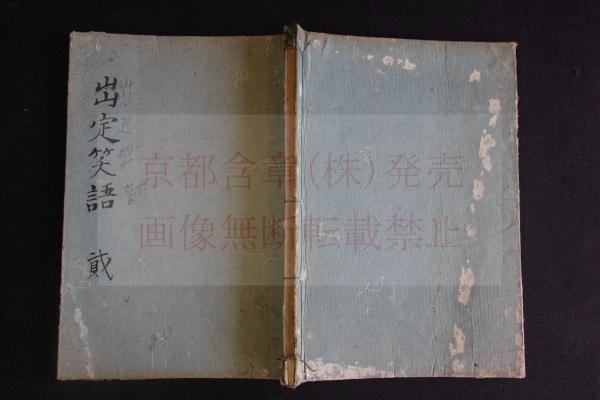 出定笑語 貮
京都含章(株)発売
画像無断転載禁止